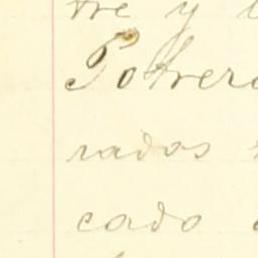 tre y
Potrero
rados
cado